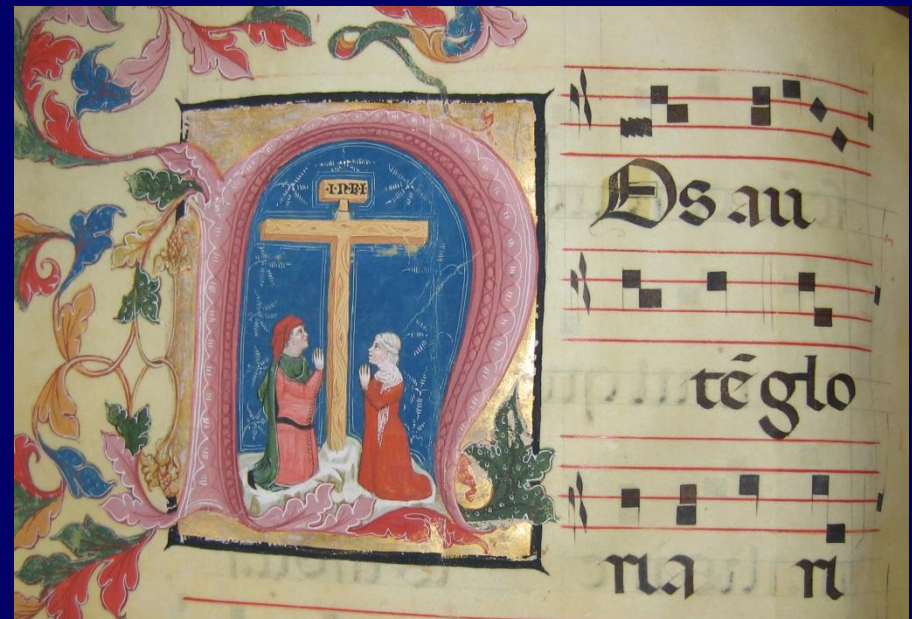 ·I·N·R·I·
N Os au
tē glo
ria ri